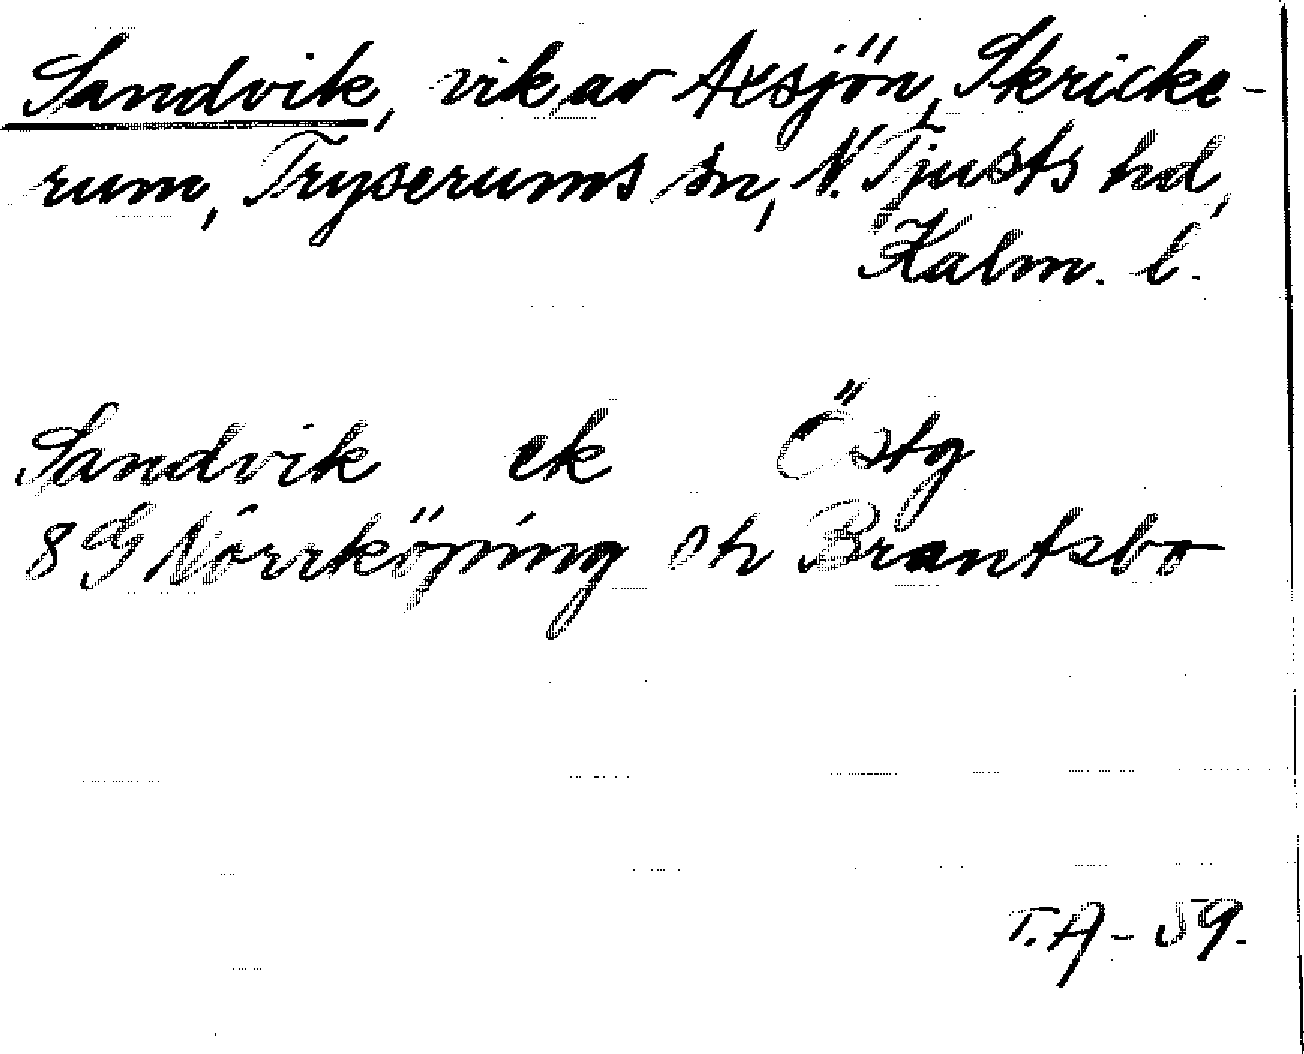 Sandvik, vik av Axsjön, Skricke-
rum, Tryserums sn, N. Tjusts hd,
Kalm. l.
Sandvik ek Östg
8 G Norrköping Str Brantsbo
T.A-59.